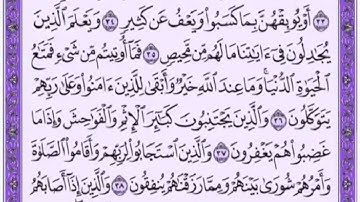 ٣٣ أَوْ يُوبِقْهُنَّ بِمَا كَسَبُوا۟ وَيَعْفُ عَن كَثِيرٍ ٣٤ وَيَعْلَمَ ٱلَّذِينَ
يُجَٰدِلُونَ فِىٓ ءَايَٰتِنَا مَا لَهُم مِّن مَّحِيصٍ ٣٥ فَمَآ أُوتِيتُم مِّن شَىْءٍ فَمَتَٰعُ
ٱلْحَيَوٰةِ ٱلدُّنْيَا ۖ وَمَا عِندَ ٱللَّهِ خَيْرٌ وَأَبْقَىٰ لِلَّذِينَ ءَامَنُوا۟ وَعَلَىٰ رَبِّهِمْ
يَتَوَكَّلُونَ ٣٦ وَٱلَّذِينَ يَجْتَنِبُونَ كَبَٰٓئِرَ ٱلْإِثْمِ وَٱلْفَوَٰحِشَ وَإِذَا مَا
غَضِبُوا۟ هُمْ يَغْفِرُونَ ٣٧ وَٱلَّذِينَ ٱسْتَجَابُوا۟ لِرَبِّهِمْ وَأَقَامُوا۟ ٱلصَّلَوٰةَ
وَأَمْرُهُمْ شُورَىٰ بَيْنَهُمْ وَمِمَّا رَزَقْنَٰهُمْ يُنفِقُونَ ٣٨ وَٱلَّذِينَ إِذَآ أَصَابَهُمُ